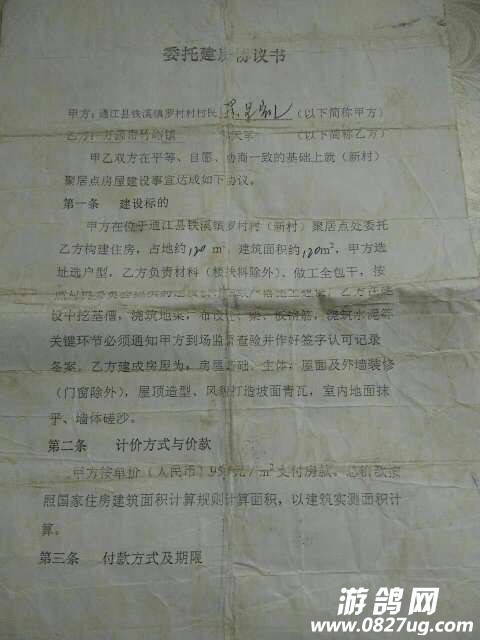 委托建房协议书
甲方：通江县铁溪镇罗村村村民 （以下简称甲方）
乙方：万源市竹峪镇 （以下简称乙方）
甲乙双方在平等、自愿、协商一致的基础上就（新村）
聚居点房屋建设事宜达成如下协议。
第一条 建设标的
甲方在位于通江县铁溪镇罗村村（新村）聚居点处委托
乙方构建住房，占地约120m²，建筑面积约120m²，甲方选
址选户型，乙方负责材料（ 除外）、做工全包干，按
乙方在建
设中挖基槽，浇筑地梁， 梁、板钢筋，浇筑水泥等
关键环节必须通知甲方到场监督查验并作好签字认可记录
备案。乙方建成房屋为：房屋基础、主体，屋面及外墙装修
（门窗除外），屋顶造型、风貌打造坡面青瓦，室内地面抹
平、墙体磋沙。
第二条 计价方式与价款
甲方按单价（人民币）95 元/m²支付房款。总价款按
照国家住房建筑面积计算规则计算面积，以建筑实测面积计
算。
第三条 付款方式及期限
游鸽网
www.0827ug.com